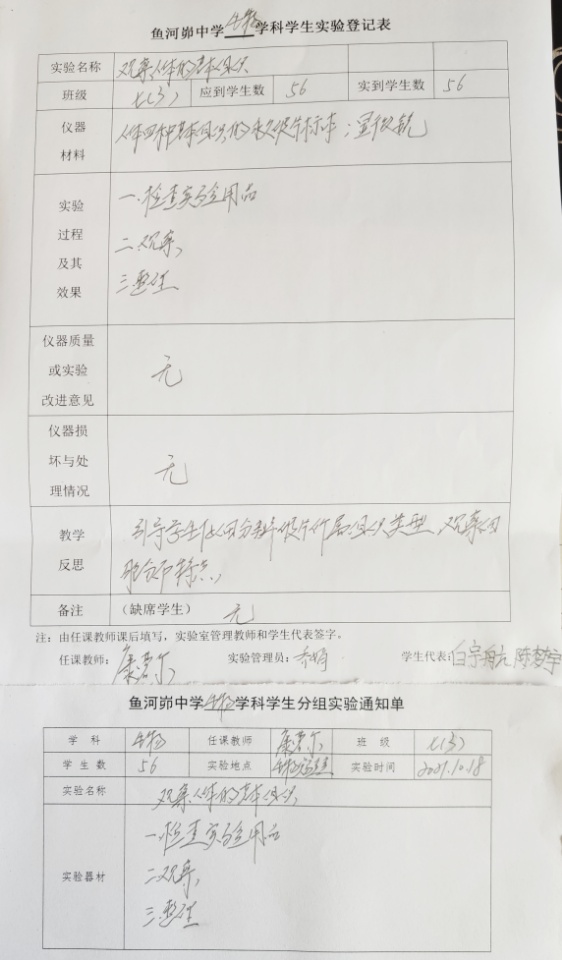 鱼河峁中学生物学科学生实验登记表
实验名称 观察人体的基本组织
班级 七(3) 应到学生数 56 实到学生数 56
仪器材料 人体四种基本组织的永久装片标本;显微镜
实验过程及其效果 一.检查实验用品
二.观察,
三.整理
仪器质量或实验改进意见 无
仪器损坏与处理情况 无
教学反思 引导学生 装片 属组织类型,观察
特点,
备注 (缺席学生) 无
注:由任课教师课后填写,实验室管理教师和学生代表签字。
任课教师: 实验管理员: 学生代表:
鱼河峁中学生物学科学生分组实验通知单
学科 生物 任课教师 班级 七(3)
学生数 56 实验地点 生物实验室 实验时间 2021.10.18
实验名称 观察人体的基本组织,
实验器材 一.检查实验用品
二.观察,
三.整理